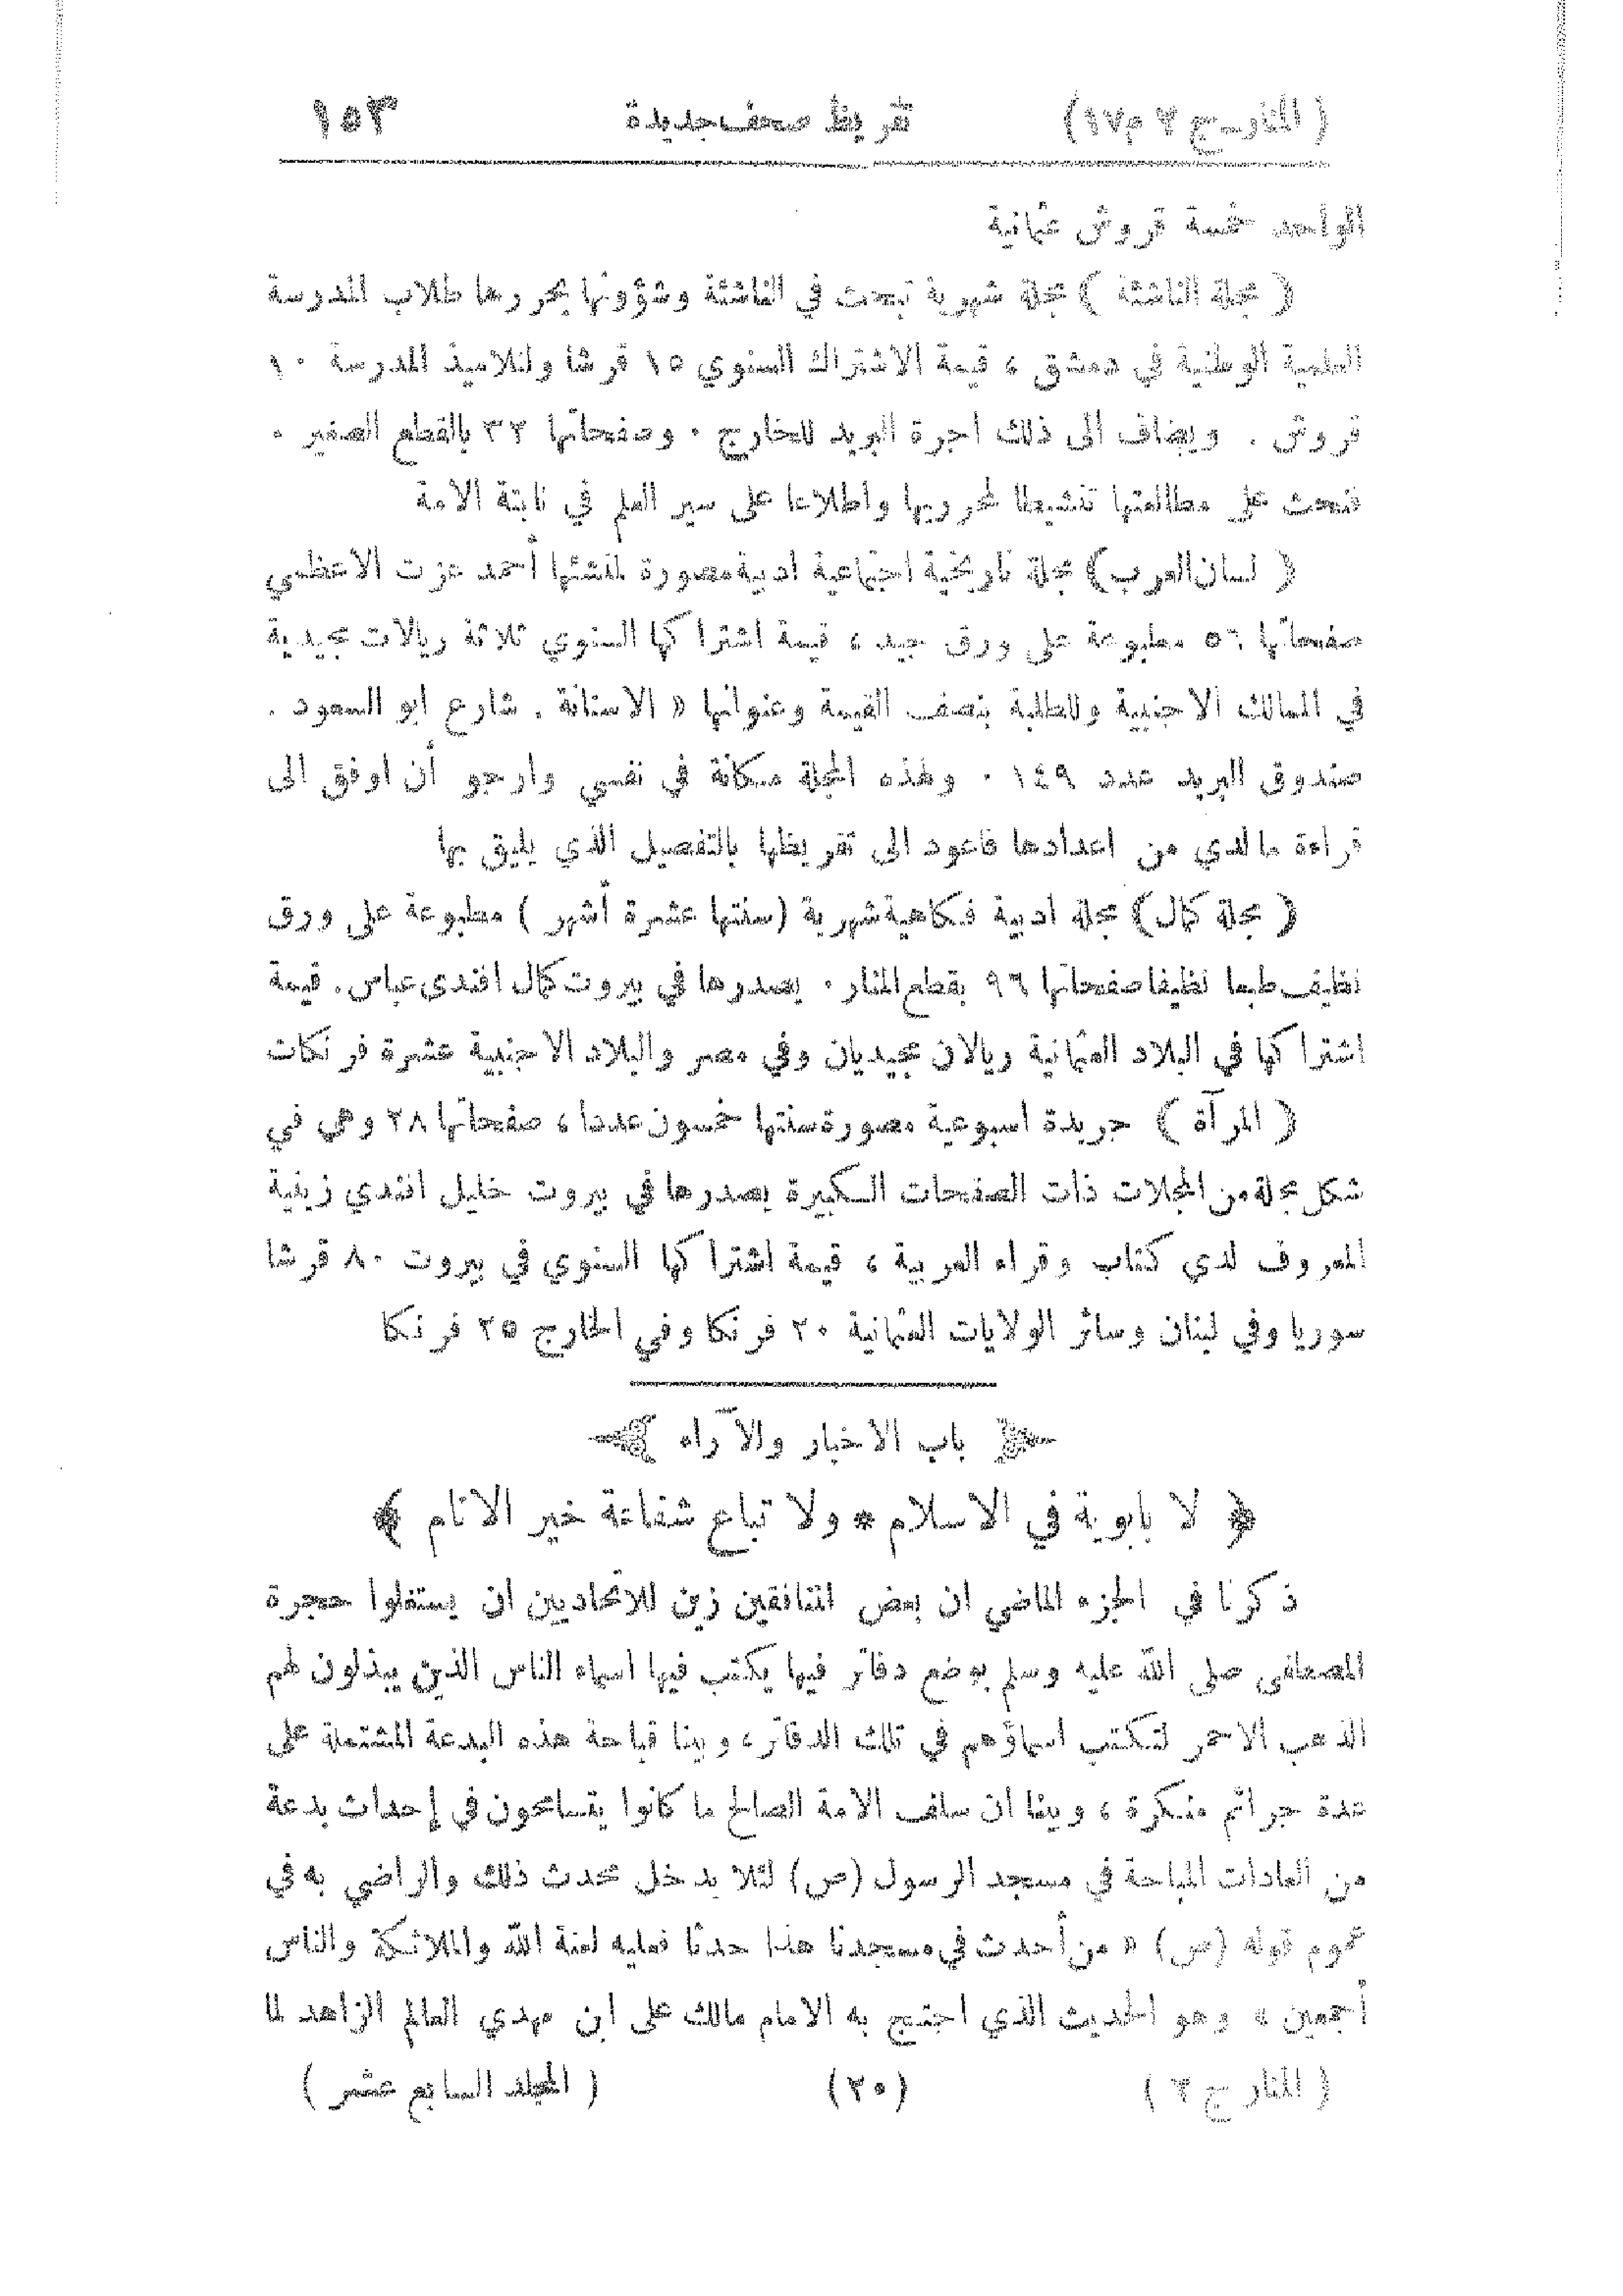 (المنار ـ ج ٢ م ١٧) تقريظ صحف جديدة ١٥٣
الواحد خمسة قروش عثمانية
( مجلة الناشئة ) مجلة شهرية تبحث في الناشئة وشؤونها يحررها طلاب المدرسة
العلمية الوطنية في دمشق ، قيمة الاشتراك السنوي ١٥ قرشا ولتلاميذ المدرسة ١٠
قروش . ويضاف الى ذلك اجرة البريد للخارج . وصفحاتها ٣٢ بالقطع الصغير .
فنحث على مطالعتها تنشيطا لمحرريها واطلاعا على سير العلم في نابتة الامة
( لسان العرب ) مجلة تاريخية اجتماعية ادبية مصورة لمنشئها أحمد عزت الاعظمي
صفحاتها ٥٦ مطبوعة على ورق جيد ، قيمة اشتراكها السنوي ثلاثة ريالات مجيدية
في الممالك الاجنبية وللطلبة بنصف القيمة وعنوانها « الاستانة . شارع ابو السعود .
صندوق البريد عدد ١٤٩ . ولهذه المجلة مكانة في نفسي وارجو أن اوفق الى
قراءة ما لدي من اعدادها فاعود الى تقريظها بالتفصيل الذي يليق بها
( مجلة كمال ) مجلة ادبية فكاهية شهرية (سنتها عشرة أشهر ) مطبوعة على ورق
نظيف طبعا نظيفا صفحاتها ٩٦ بقطع المنار . يصدرها في بيروت كمال افندى عباس . قيمة
اشتراكها في البلاد العثمانية ريالان مجيديان وفي مصر والبلاد الاجنبية عشرة فرنكات
( المرآة ) جريدة اسبوعية مصورة سنتها خمسون عددا ، صفحاتها ٢٨ وهي في
شكل مجلة من المجلات ذات الصفحات الكبيرة يصدرها في بيروت خليل افندي زينية
المعروف لدي كتاب وقراء العربية ، قيمة اشتراكها السنوي في بيروت ٨٠ قرشا
سوريا وفي لبنان وسائر الولايات العثمانية ٢٠ فرنكا وفي الخارج ٢٥ فرنكا
باب الاخبار والآراء
﴿ لا بابوية في الاسلام * ولا تباع شفاعة خير الانام ﴾
ذكرنا في الجزء الماضي ان بعض المنافقين زين للاتحاديين ان يستغلوا حجرة
المصطفى صلى الله عليه وسلم بوضع دفاتر فيها يكتب فيها اسماء الناس الذين يبذلون لهم
الذهب الاحمر لتكتب اسماؤهم في تلك الدفاتر ، وبينا قباحة هذه البدعة المشتملة على
عدة جرائم منكرة ، وبينا ان سلف الامة الصالح ما كانوا يتسامحون في إحداث بدعة
من العادات المباحة في مسجد الرسول (ص) لئلا يدخل محدث ذلك والراضي به في
عموم قوله (ص) « من أحدث في مسجدنا هذا حدثا فعليه لعنة الله والملائكة والناس
أجمعين » وهو الحديث الذي احتج به الامام مالك على ابن مهدي العالم الزاهد لما
( المنار ج ٢ ) (٢٠) ( المجلد السابع عشر )